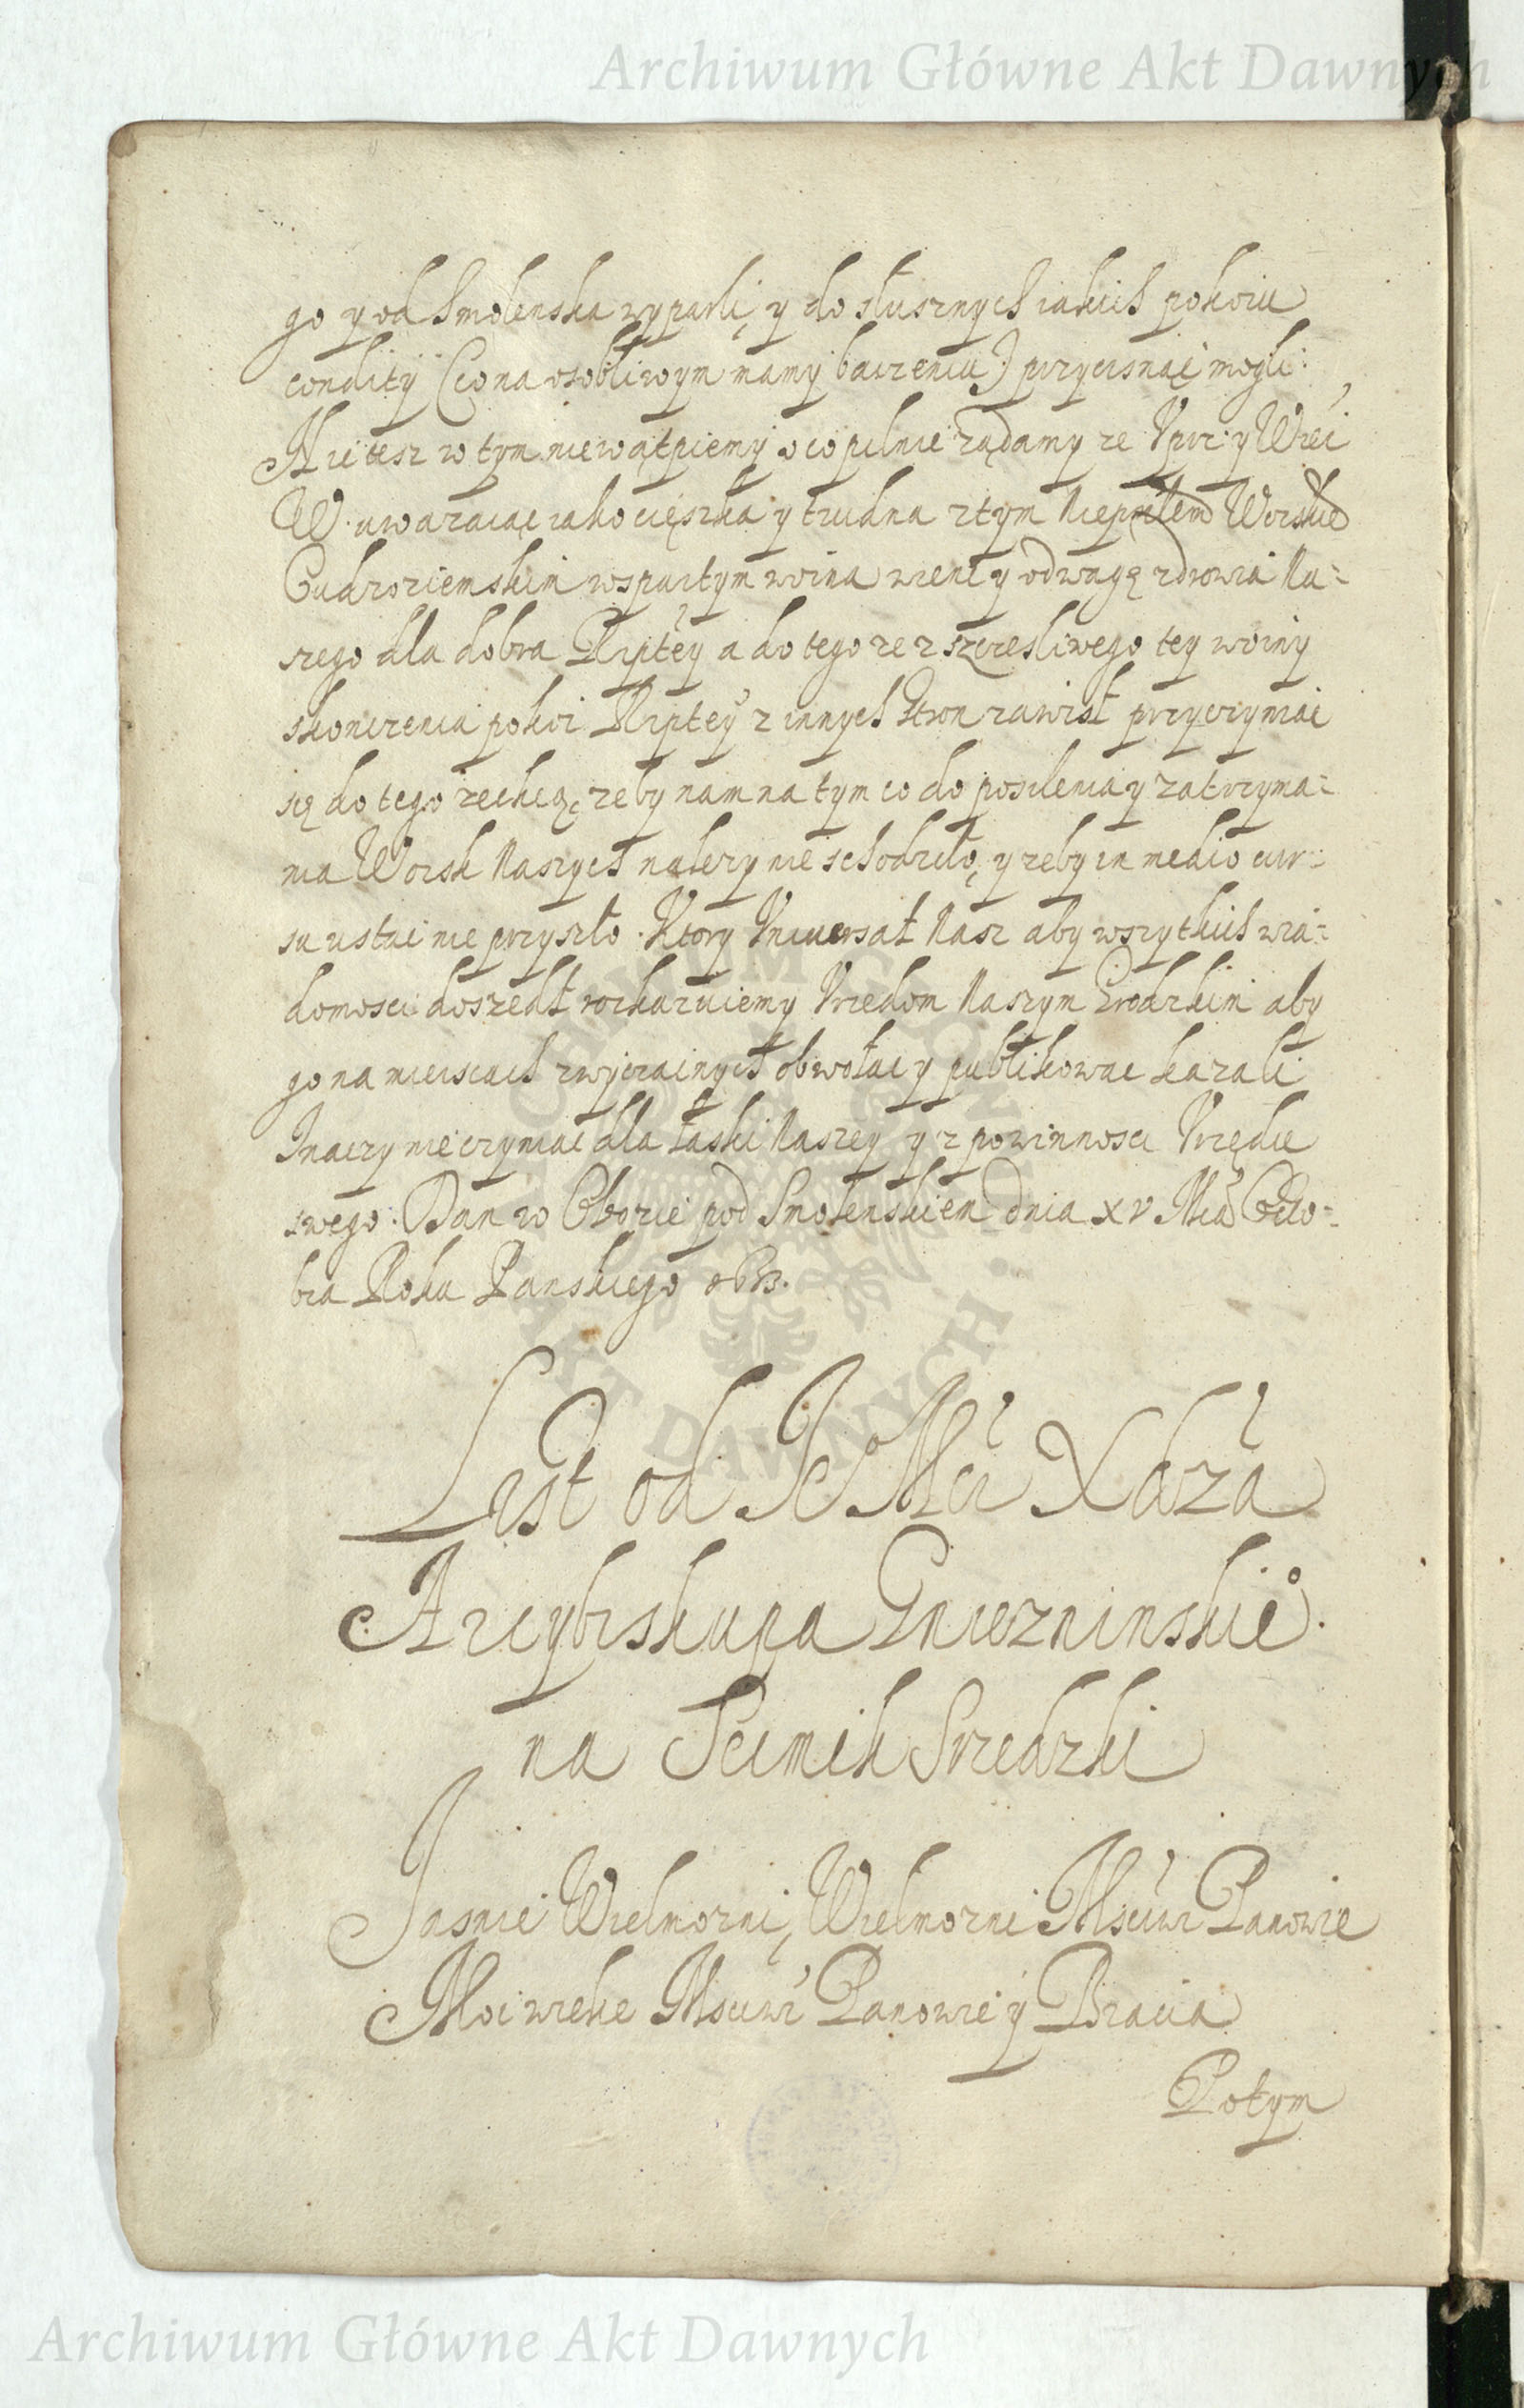 Archiwum Główne Akt Dawnych
go y od Smolenska wyparli, y do słusznych iakich pokoiu
conditÿ (co na osobliwym mamy baczeniu) przycisnąć mogli:
A ze tesz w tym nie wątpiemy, o co pilnie ządamy ze Vprz: y Wrći
W. uwazaiąc iako cięszka y trudna z tym Nieprielem Worskie
Cudzoziemskim wspartym woina wiene y odwagę zdrowia Na=
szego dla dobra Rzptey a do tego ze z szczesliwego tey woiny
skonczenia pokoi Rzptey z innych stron zawisł przyczyniać
się do tego zechcą, zeby nam na tym co do posilenia y zatrzyma=
nia Woisk Naszych nalezy nie schodziło, y zeby in medio cur=
su ustac nie przyszło. Ktory Vniuersał Nasz aby wszytkich wia=
domosci doszedł roskazuiemy Vrzedom Naszym Grodzkim aby
go na mieiscach zwyczainych obwołac y publikowac kazali
Inaczy nie czyniac dla łaski Naszey y z powinnosci Vrzędu
swego. Dan w Obozie pod Smolenskiem dnia XV Mća Octo=
bra Roku Panskiego
List od Je Mći Xdza
Arcybiskupa Gniezninskiė.
na Seimik Srzedzki
Jasnie Wielmozni, Wielmozni Msciwi Panowie
Moi wielce Msciwi Panowie y Bracia
Potym
ARCHIWUM GŁÓWNE AKT DAWNYCH
Archiwum Główne Akt Dawnych